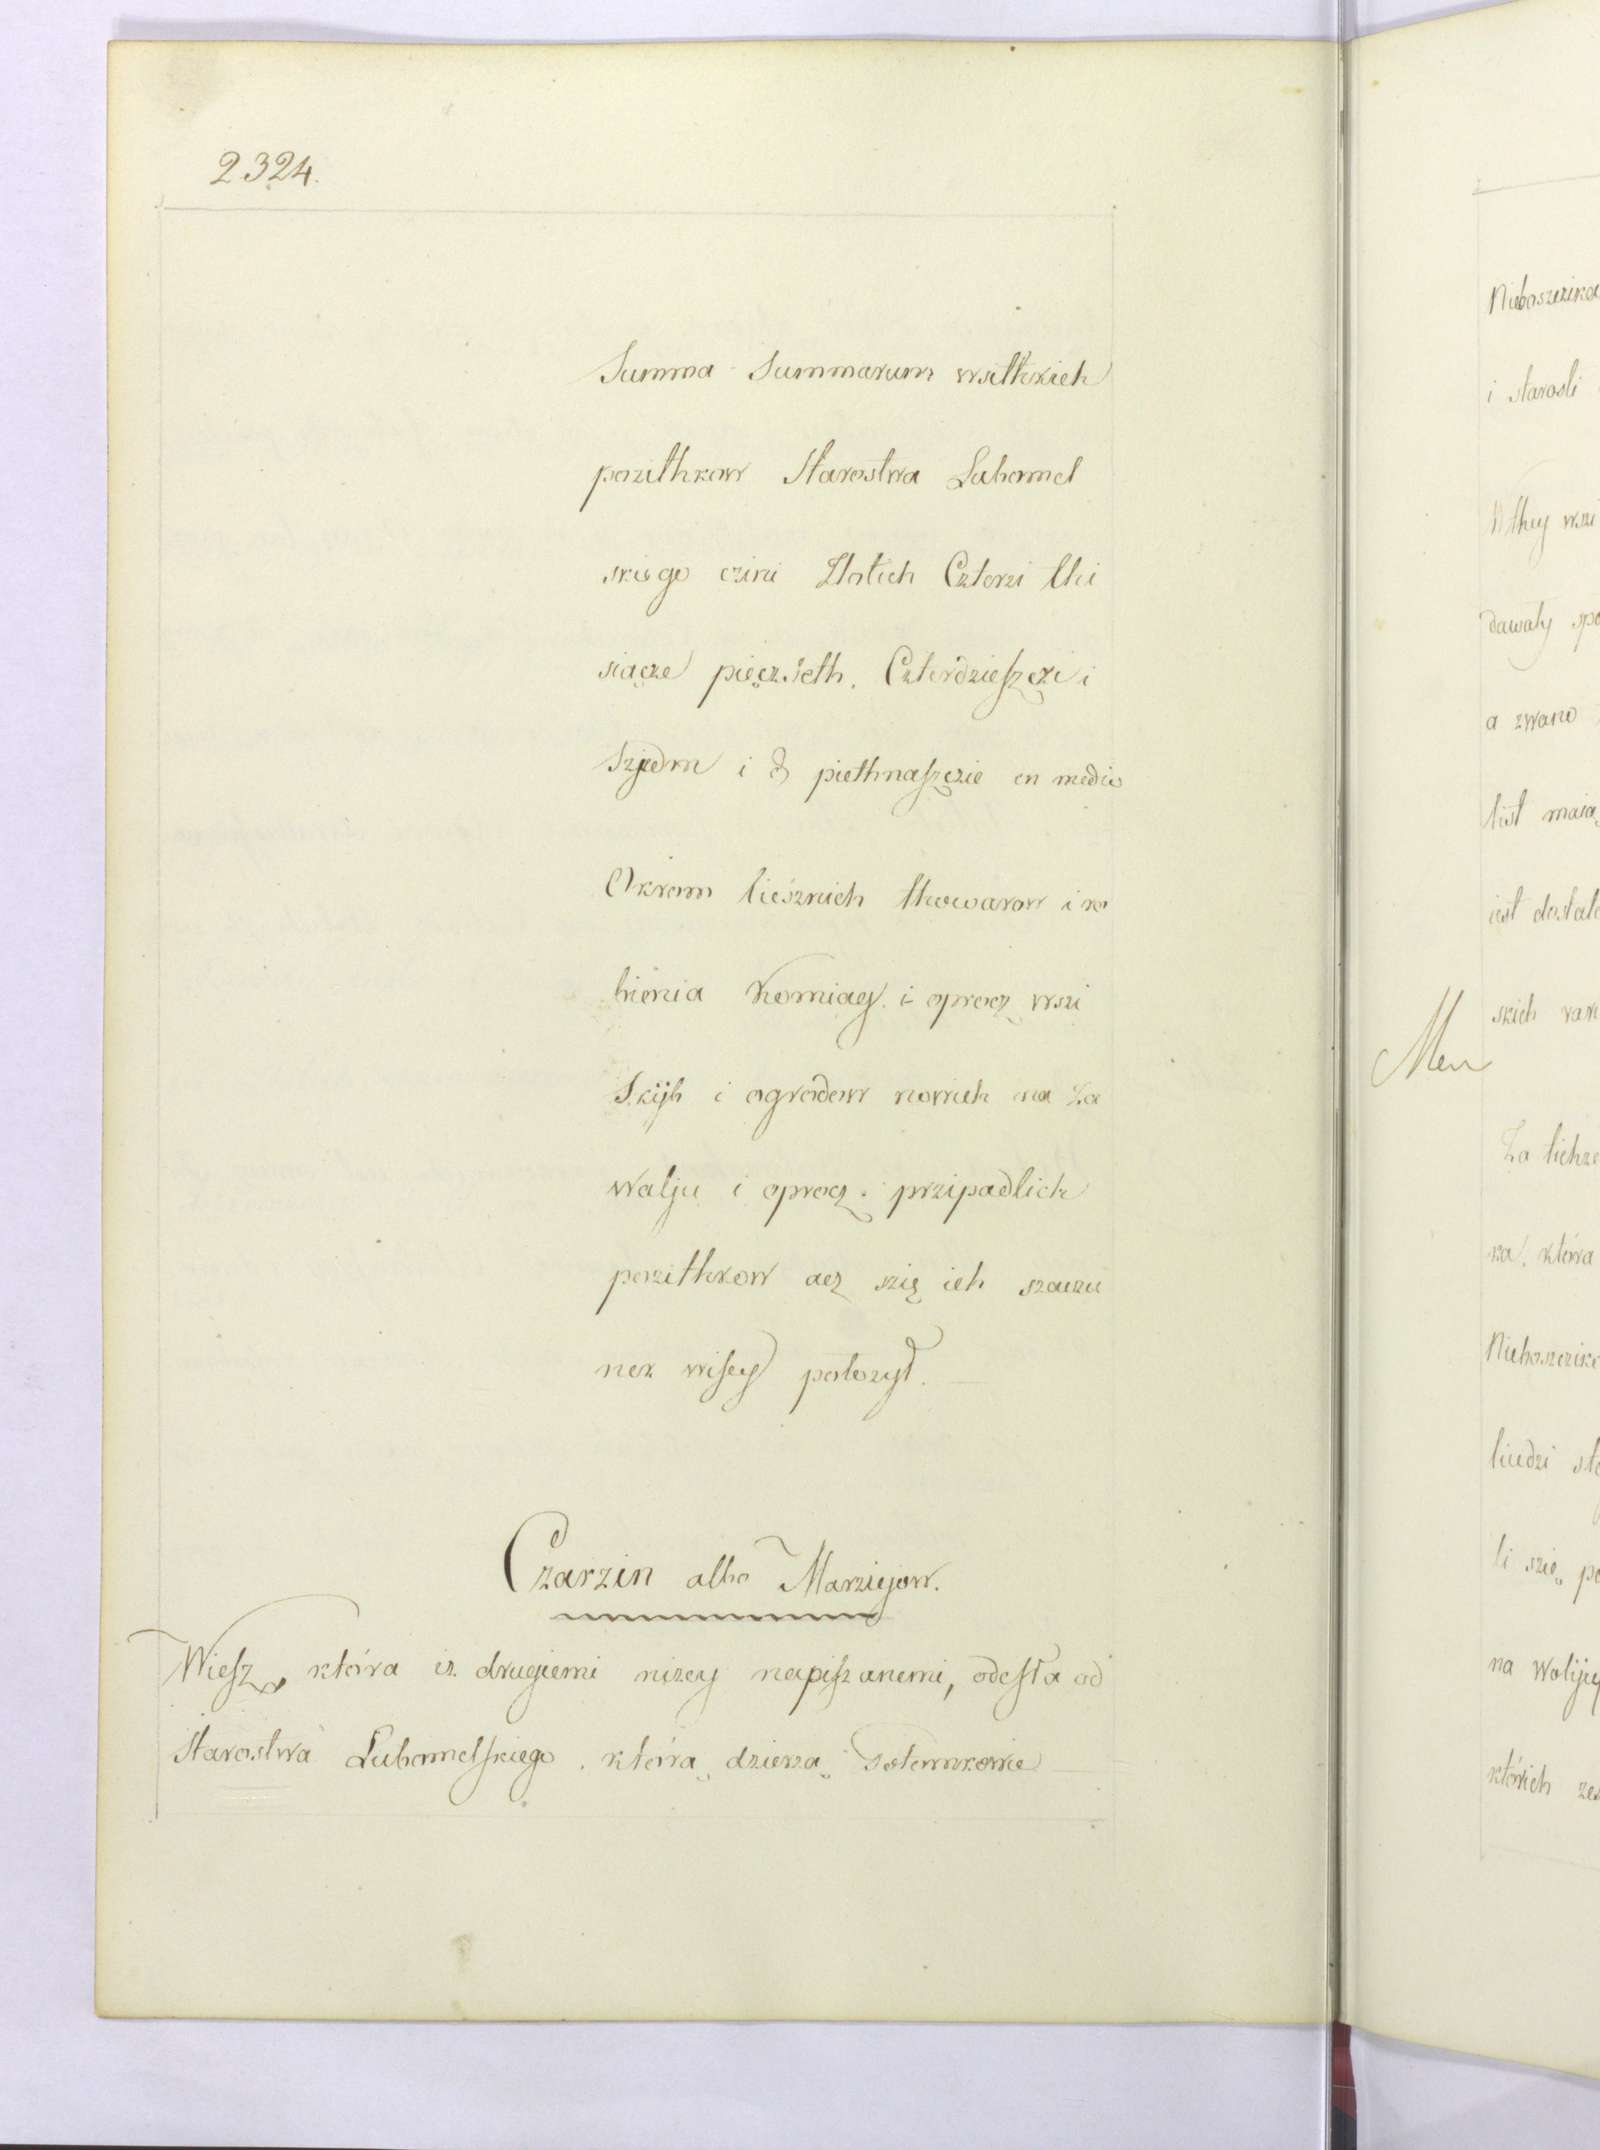 2324.
Summa Summarum wsitkich
pozithkow Starostwa Lubomel
skiego czini Zlotich Czterzi thi
siącze pięczseth. Czterdzieszczi i
Szjedm i piethnaszczie en medio
Okrom liesznich thowarow i ro
bienia Komiag. i oprocz wszi
Skijh i ogrodow nowich na Za
walju i oprocz. przipadlich
pozithkow acz szię ich szaczu
nek wisey położył.
Czarzin albo Marziejow.
Wiesz, która iz drugiemi nizey napiszanemi, odesła od
Starostwa Lubomelskiego. którą dzierzą
Nieboszczika
i starosli
Wthey wszi
dawały spo
a zwano
list maią
iest dostate
skich
Men
Za tich
ka, która
Nieboszczika
liudzi
li szię po
na Wolijy
którich